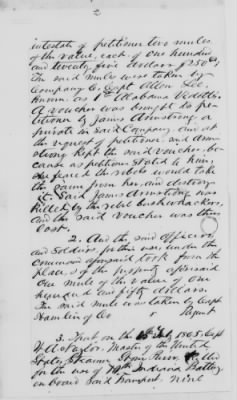 2
intestate of petitioner two mules
of the value, each of one hundred
and twenty five dollars $250.00
The said mules were taken by
Company C, Capt Allen Lee,
known as 1st Alabama Vidette
A voucher was brought to pe-
titioner by James Armstrong a
private in said Company, and at
the request of petitioner, and Arm-
strong kept the said voucher, be-
cause as petitioner stated to him,
she feared the rebels would take
the same from her, and destroy
it. Said James Armstrong was
killed by the rebel bushwhackers,
and the said voucher was thus
lost.
2. And the said Officers
and Soldiers, for the use, under the
command aforesaid took from the
place, & of the property aforesaid
one mule of the value of one
hundred and fifty dollars.
The said mule was taken by Capt
Hamlin of Co
3. That on the 1865 Capt
Taylor, Master of the United
States Steamer
for the use of Indiana Battery
on board said transport nine